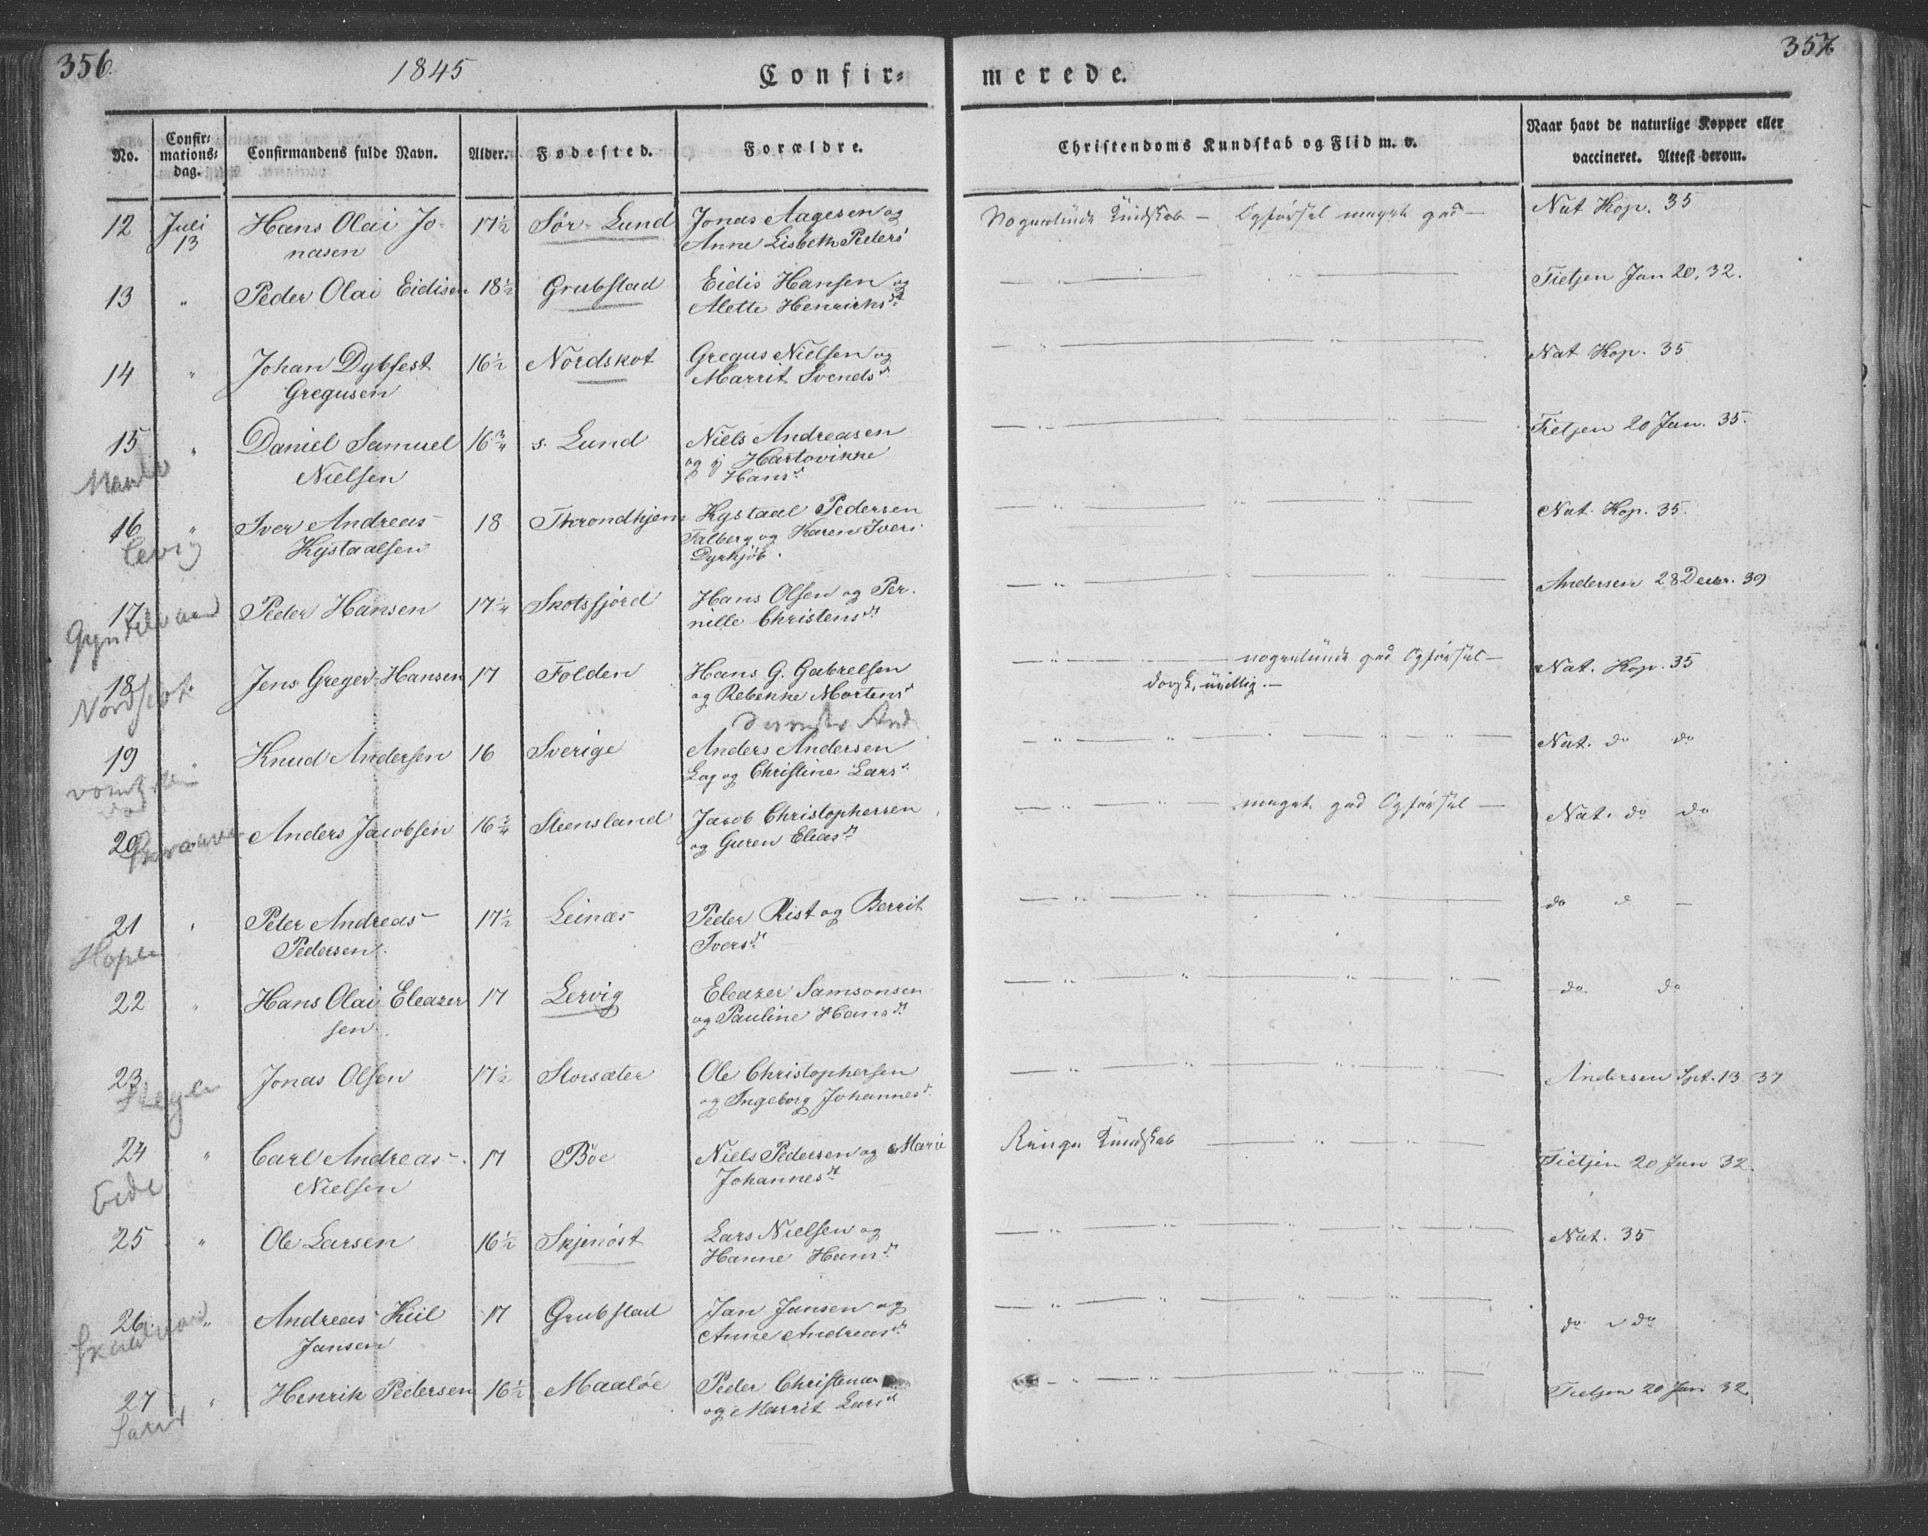 356.
1845
Confir-
merede.
357
No.
Confir-
mations-
dag.
Confirmandens fulde Navn.
Alder.
Fødested.
Forældre.
Christendoms Kundskab og Flid m. v.
Naar havt de naturlige Kopper eller
vaccineret. Attest derom.
12 Juli 13 Hans Olai Jo- 17½ Sør-Lund Jonas Aagesen og Nogenlunde Kundskab — Opførsel meget god — Nat Kop. 35
nasen Anne Lisbeth Peders
13 " Peder Olai Eidisen 18½ Grubstad Eidis Hansen og Tietjen Jan 20, 32.
Alette Henrichsdt
14 " Johan Dybfest 16½ Nordskot Gregus Nielsen og Nat Kop. 35
Gregusen Marrit Svendsdt
15 " Daniel Samuel 16¾ s. Lund Niels Andreasen Tietjen 20 Jan. 35.
Nielsen og Hartovikke
Hansdt
16 " Iver Andreas 18 Throndhjem Kystaal Pedersen Nat. Kop. 35.
Kystaalsen Falberg og Karen Ivers
Dyrkjøb.
17 Peder Hansen 17¼ Skotsfjord Hans Olsen og Per- Andersen 28 Decbr. 39
nille Christensdt
18 Jens Greger Hansen 17 Folden Hans G. Gabrelsen nogenlunde god Opførsel — Nat. Kop. 35
Nordskot og Rebekke Mortensdt dorsk, uvillig. —
19 " Knud Andersen 16 Sverige Anders Andersen Nat. do do
og Christine Larsd.
20 Anders Jacobsen 16¾ Steensland Jacob Christophersen meget god Opførsel — Nat. do do
og Guren Eliasdt
21 " Peter Andreas 17½ Leinæs Peder Rist og Berrit do d —
Pedersen. Iversdt
22 " Hans Olai Eleazer 17 Lervig Eleazer Samsonsen do. do
sen. og Pauline Hansdt
23 Jonas Olsen 17½ Storsæter Ole Christophersen Andersen Spt. 13 37
og Ingeborg Johannesd.
24 " Carl Andreas 17 Bøe Niels Pedersen og Marie Ringe Kundskab Tietjen 20 Jan 32.
Eide Nielsen Johannesdt
25 " Ole Larsen 16½ Skjenöst Lars Nielsen og Nat. 35
Hanne Hansdt
26. " Andreas Kiil 17 Grubstad Jan Jansen og do do
Jansen Anne Andreasdt
27 " Henrik Pedersen 16½ Maaløe Peder Christensen Tietjen 20 Jan 32.
og Marrit Larsd